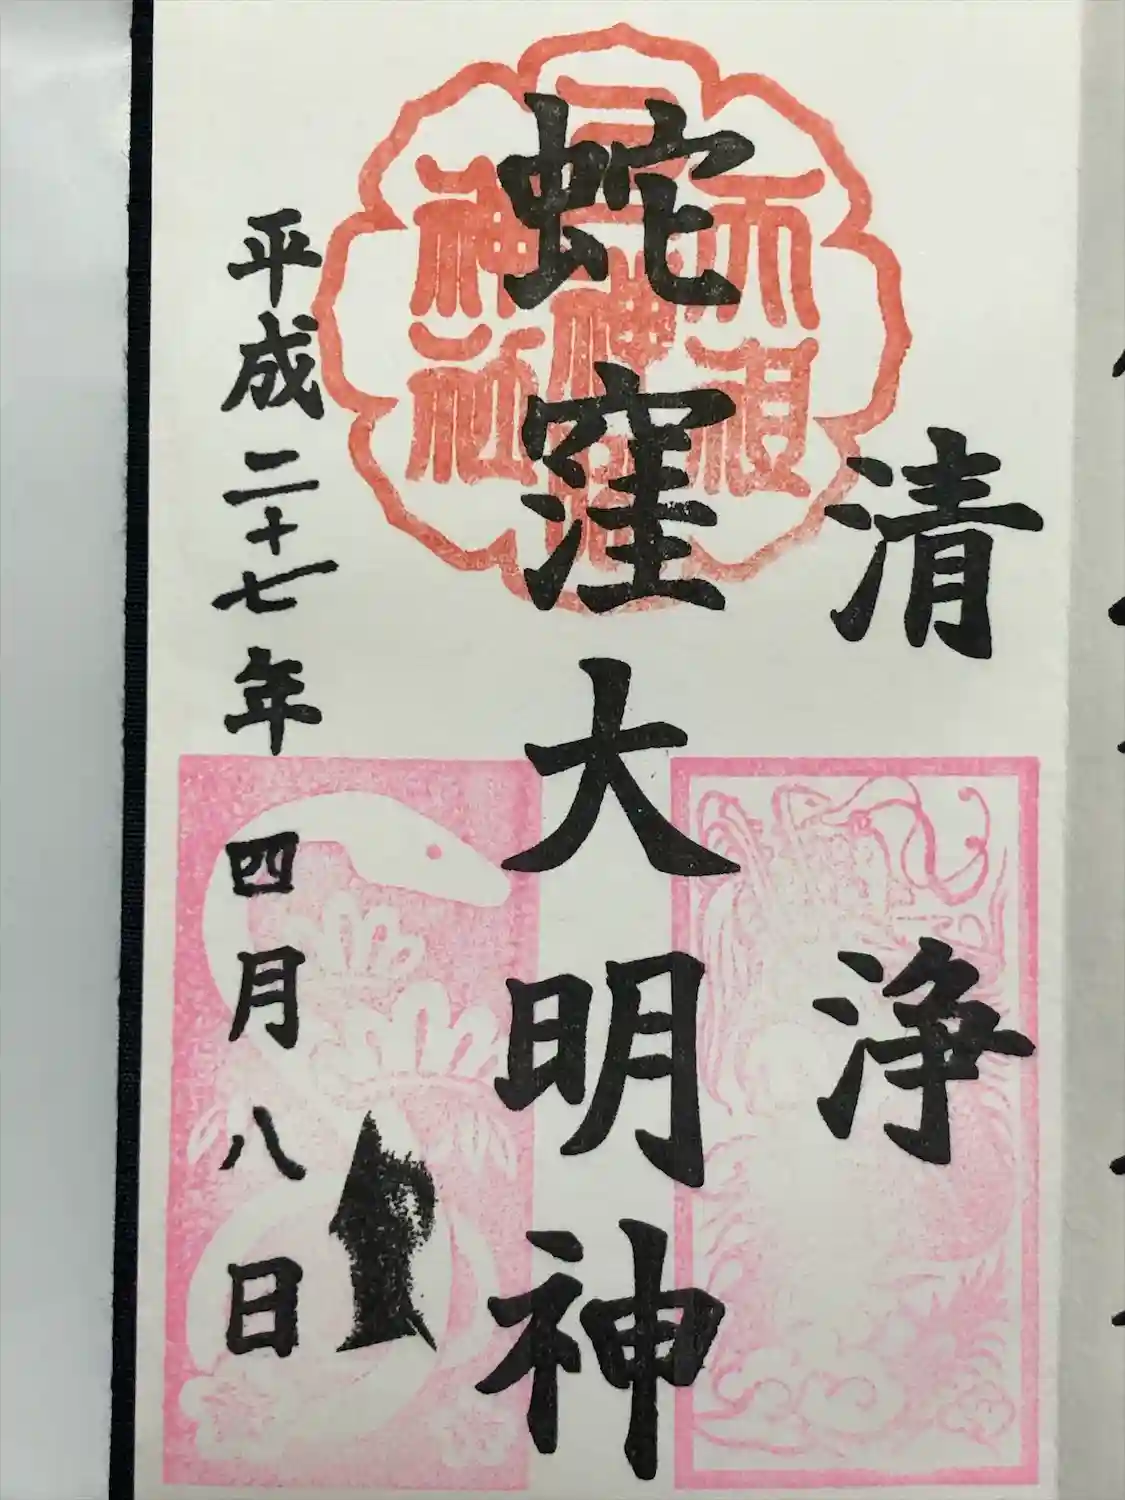 清浄
蛇窪大明神
平成二十七年四月八日
天祖
神社